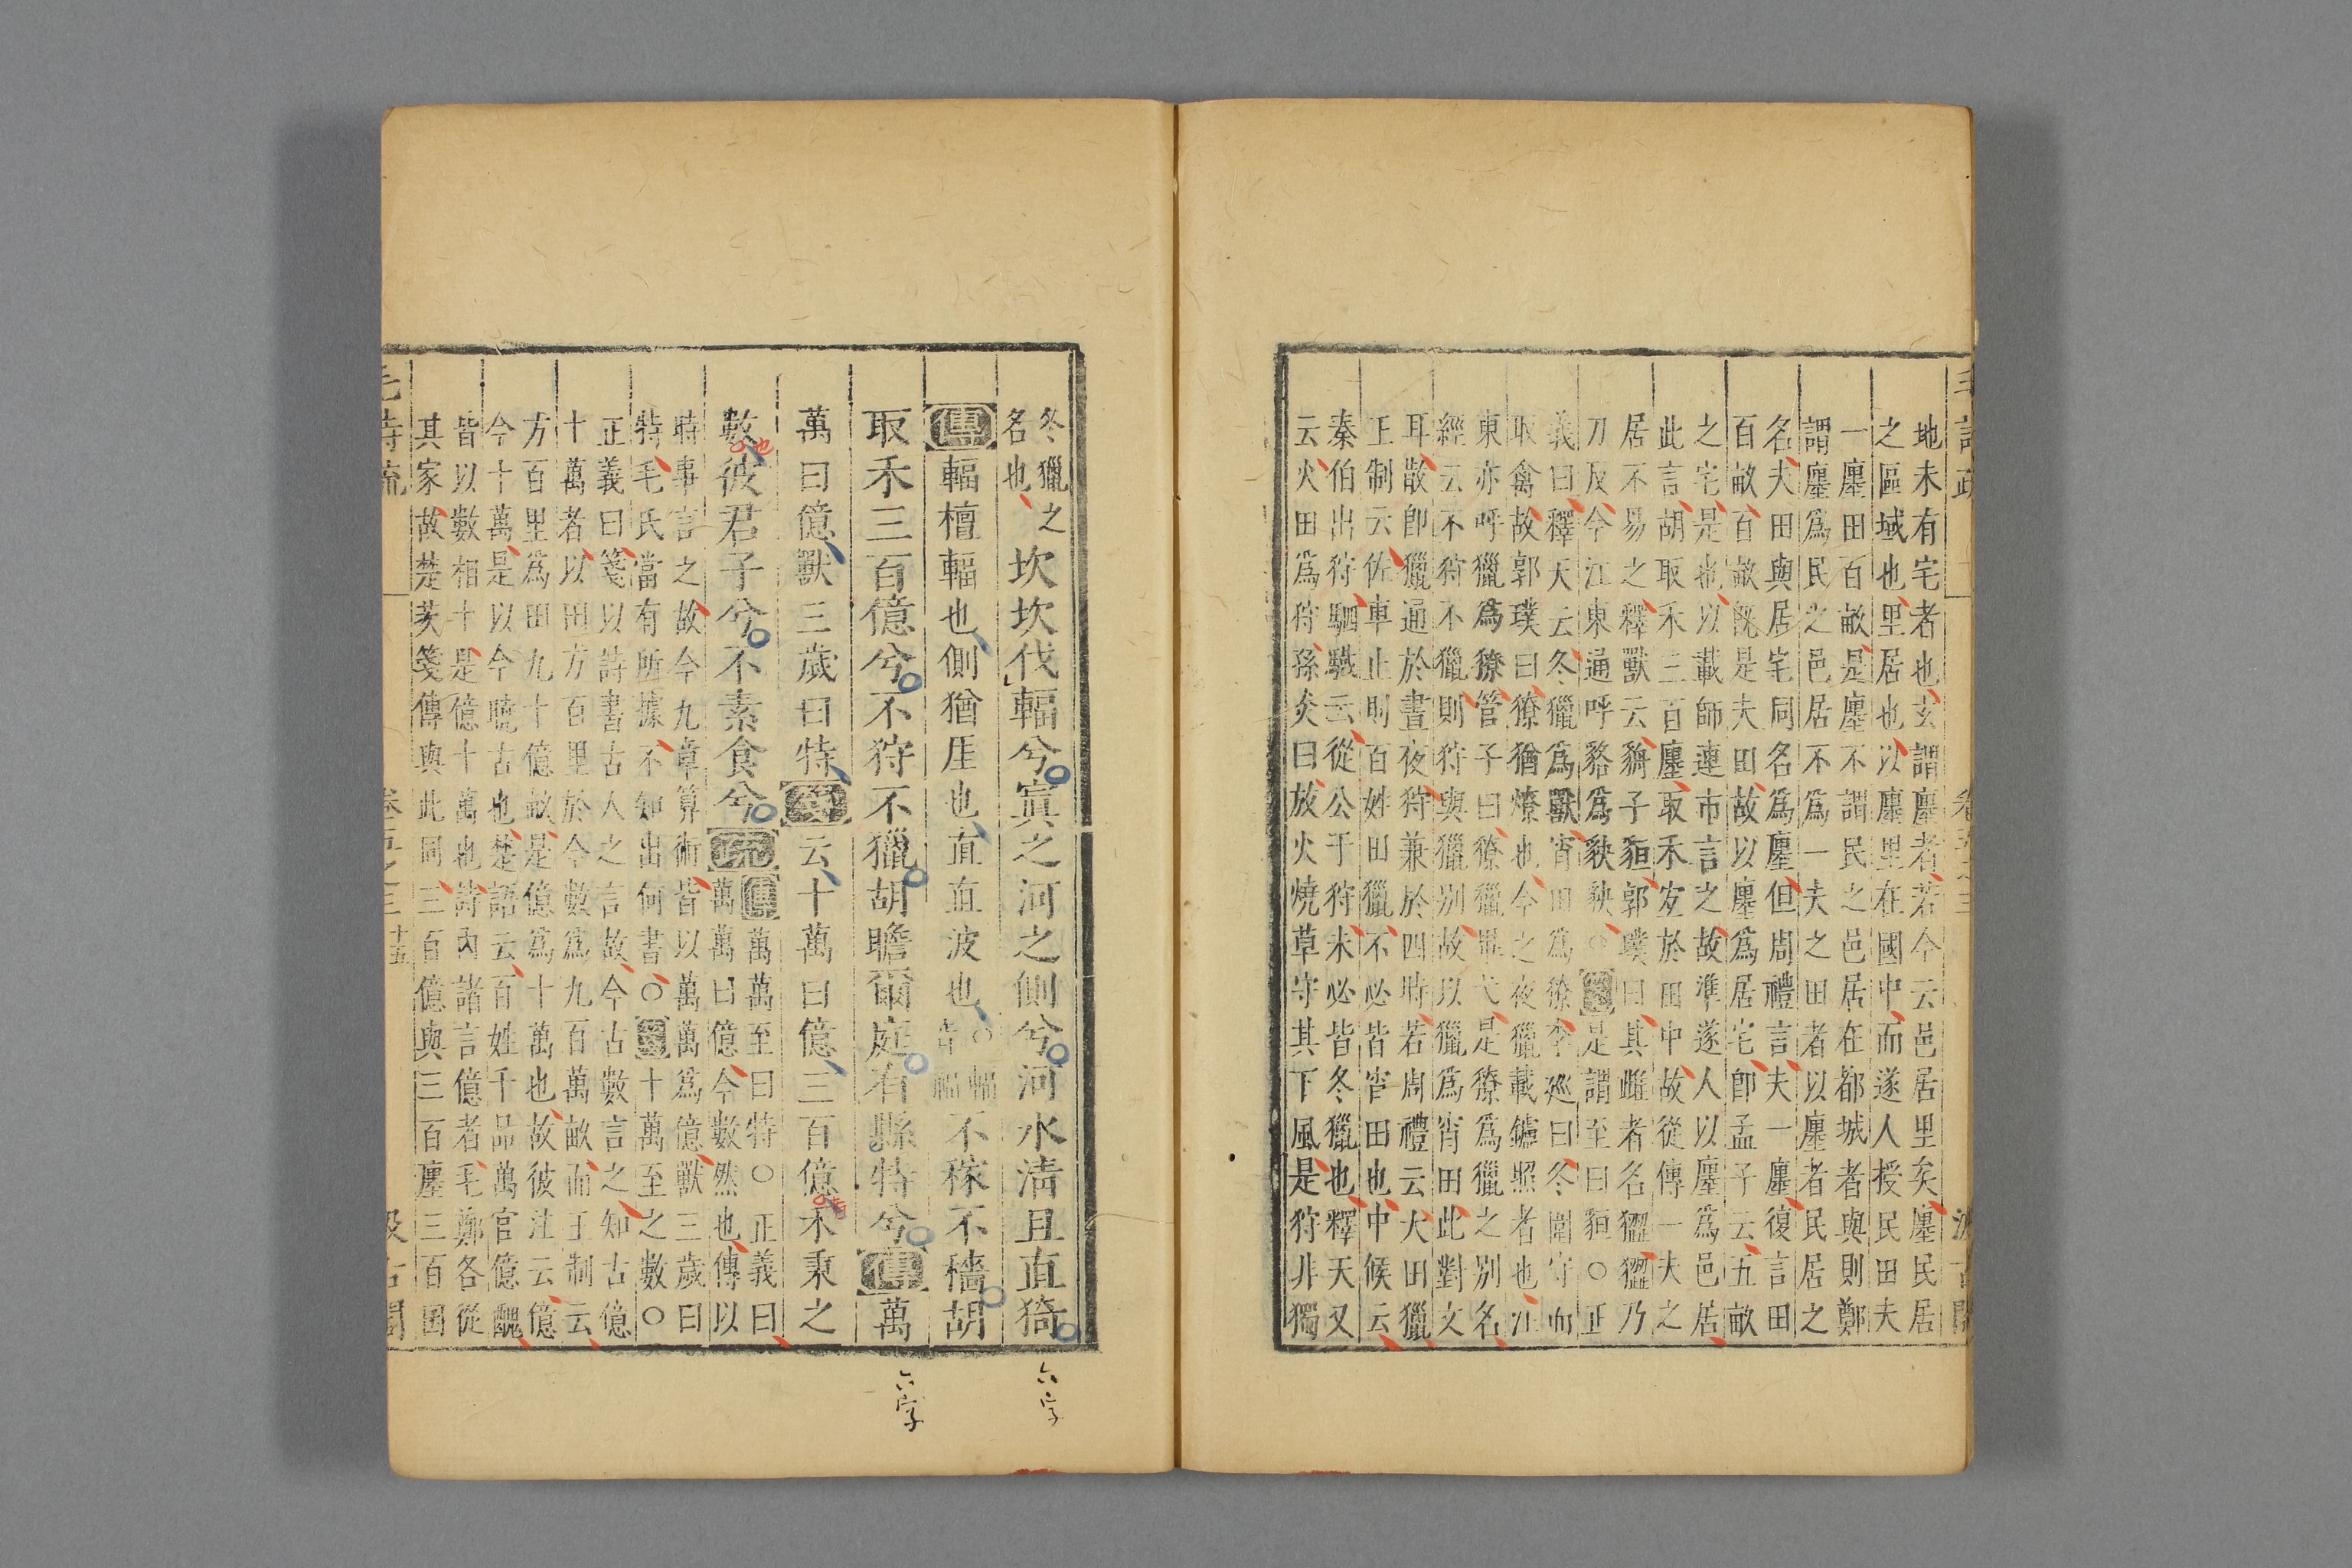 毛詩疏 卷五之三 汲古閣
地未有宅者也玄謂廛者若今云邑居里矣廛民居
之區域也里居也以廛里在國中而遂人授民田夫
一廛田百畝是廛不謂民之邑居在都城者與則鄭
謂廛爲民之邑居不爲一夫之田者以廛者民居之
名夫田與居宅同名爲廛但周禮言夫一廛復言田
百畝百畝既是夫田故以廛爲居宅卽孟子云五畝
之宅是也以載師連市言之故準遂人以廛爲邑居
此言胡取禾三百廛取禾宜於田中故從傳一夫之
居不易之釋獸云貈子貆郭璞曰其雌者名乃
刀反今江東通呼貉爲○箋是謂至曰貆○正
義曰釋天云冬獵爲獸宵田爲獠李巡曰冬圍守而
取禽故郭璞曰獠猶燎也今之夜獵載鑪照者也江
東亦呼獵爲獠管子曰獠獵畢弋是獠爲獵之别名
經云不狩不獵則狩與獵别故以獵爲宵田此對文
耳散卽獵通於晝夜狩兼於四時若周禮云大田獵
王制云佐車止則百姓田獵不必皆宵田也中候云
秦伯出狩駟驖云從公于狩未必皆冬獵也釋天又
云火田爲狩孫炎曰放火燒草守其下風是狩非獨
冬獵之
名也
坎坎伐輻兮寘之河之側兮河水清且直猗
六字
傳輻檀輻也側猶厓也直直波也○輻音福不稼不穡胡
取禾三百億兮不狩不獵胡瞻爾庭有縣特兮傳萬
六字
萬曰億獸三歲曰特箋云十萬曰億三百億禾秉之
數彼君子兮不素食兮疏
傳萬萬至曰特○正義曰
萬萬曰億今數然也傳以
時事言之故今九章算術皆以萬萬爲億獸三歲曰
特毛氏當有所據不知出何書○箋十萬至之數○
正義曰箋以詩書古人之言故今古數言之知古億
十萬者以田方百里於今數爲九百萬畝而王制云
方百里爲田九十億畝是億爲十萬也故彼注云億
今十萬是以今曉古也楚語云百姓千品萬官億醜
皆以數相十是億十萬也詩內諸言億者毛鄭各從
其家故楚茨箋傳與此同三百億與三百廛三百囷
毛詩疏 卷五之三 十五 汲古閣